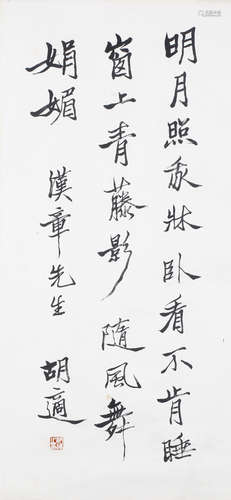 明月照我牀卧看不肯睡
窗上青藤影随風舞
娟媚
漢章先生 胡適